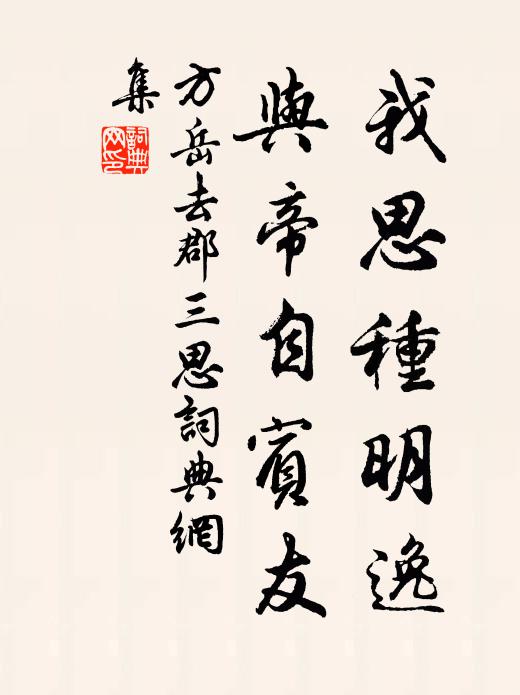 我思種明逸
與帝自賓友
方岳去郡三思詞典網
集
詞典
网印